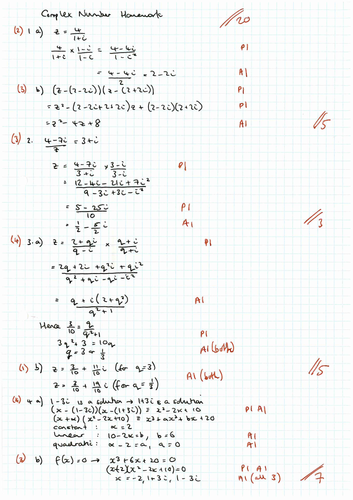 Complex Number Homework
//20
(2) 1 a) z = 4/(1+i)
4/(1+i) × (1-i)/(1-i) = (4-4i)/(1-i²) P1
= (4-4i)/2 = 2-2i A1
(3) b) (z-(2-2i))(z-(2+2i)) P1
= z² - (2-2i+2+2i)z + (2-2i)(2+2i) P1
= z² - 4z + 8 A1 //5
(3) 2. (4-7i)/z = 3+i
z = (4-7i)/(3+i) × (3-i)/(3-i) P1
= (12-4i-21i+7i²)/(9-3i+3i-i²)
= (5-25i)/10 P1
= 1/2 - 5/2 i A1 //3
(4) 3.a) z = (2+qi)/(q-i) × (q+i)/(q+i) P1
= (2q+2i+q²i+qi²)/(q²+qi-qi-i²)
= (q+i(2+q²))/(q²+1) A1
Hence 3/10 = q/(q²+1)
3q²+3 = 10q P1
q = 3 or 1/3 A1 (both)
(1) b) z = 3/10 + 11/10 i (for q=3) A1 (both) //5
z = 3/10 + 19/10 i (for q=1/3)
4 a) 1-3i is a solution → 1+3i is a solution
(x-(1-3i))(x-(1+3i)) = x²-2x+10 P1 A1
(x+α)(x²-2x+10) = x³+ax²+bx+20
constant: α=2
linear: 10-2α=b, b=6 A1
quadratic: α-2=a, a=0 A1
(3) b) f(x)=0 → x³+6x+20=0
(x+2)(x²-2x+10)=0 P1 A1
x = -2, 1+3i, 1-3i A1 (all 3) //7